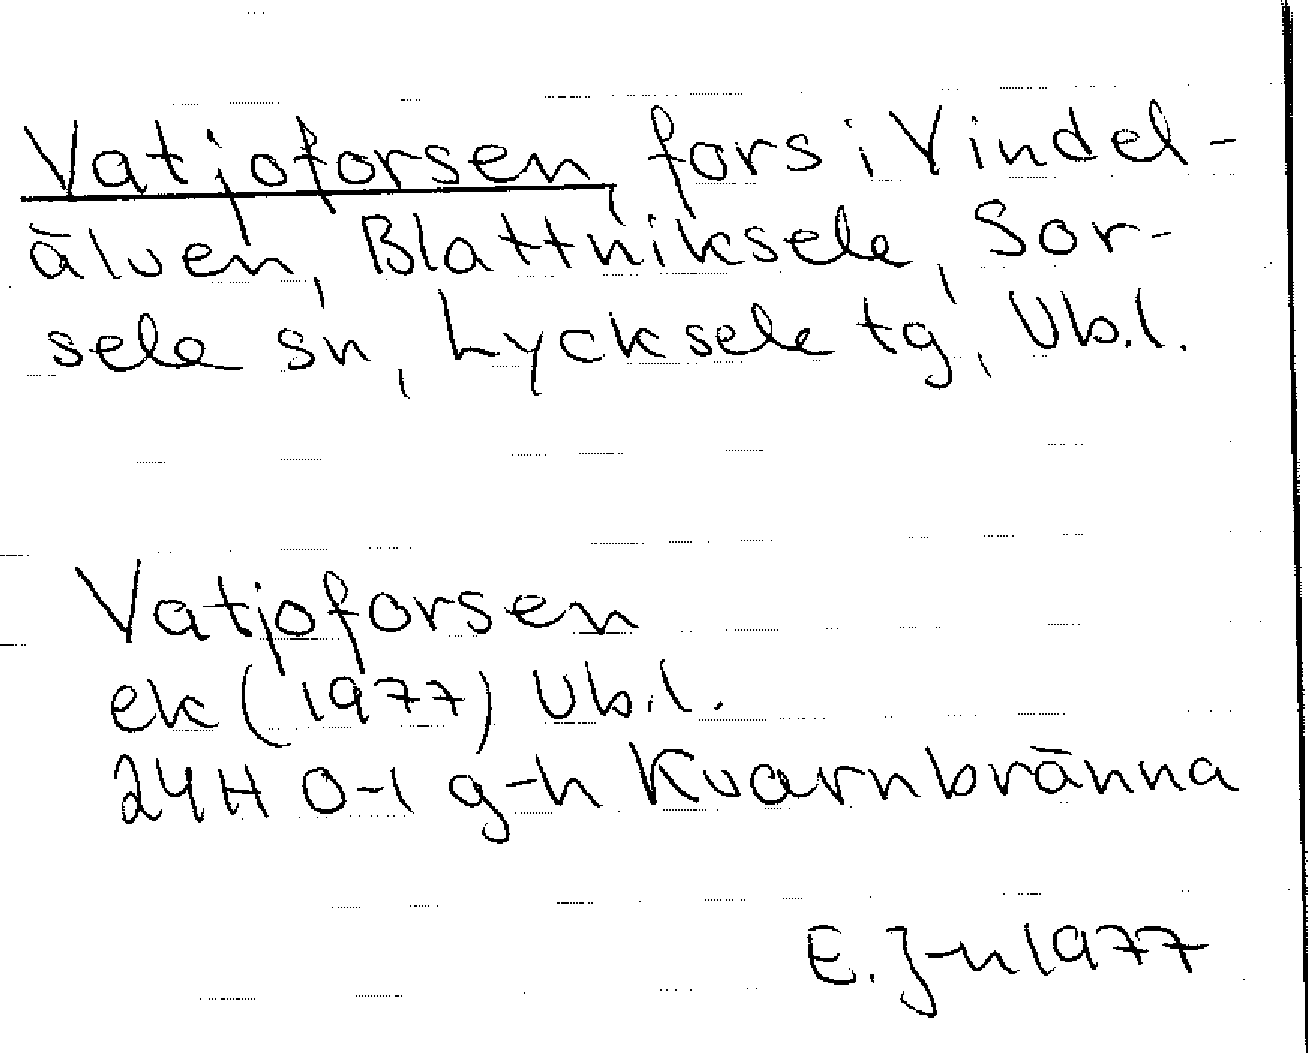 Vatjoforsen, fors i Vindel-
älven, Blattniksele, Sor-
sele sn, Lycksele tg, Vb.l.
Vatjoforsen
ek (1977) Vb.l.
24H 0-1 g-h Kvarnbränna
E. J-n 1977